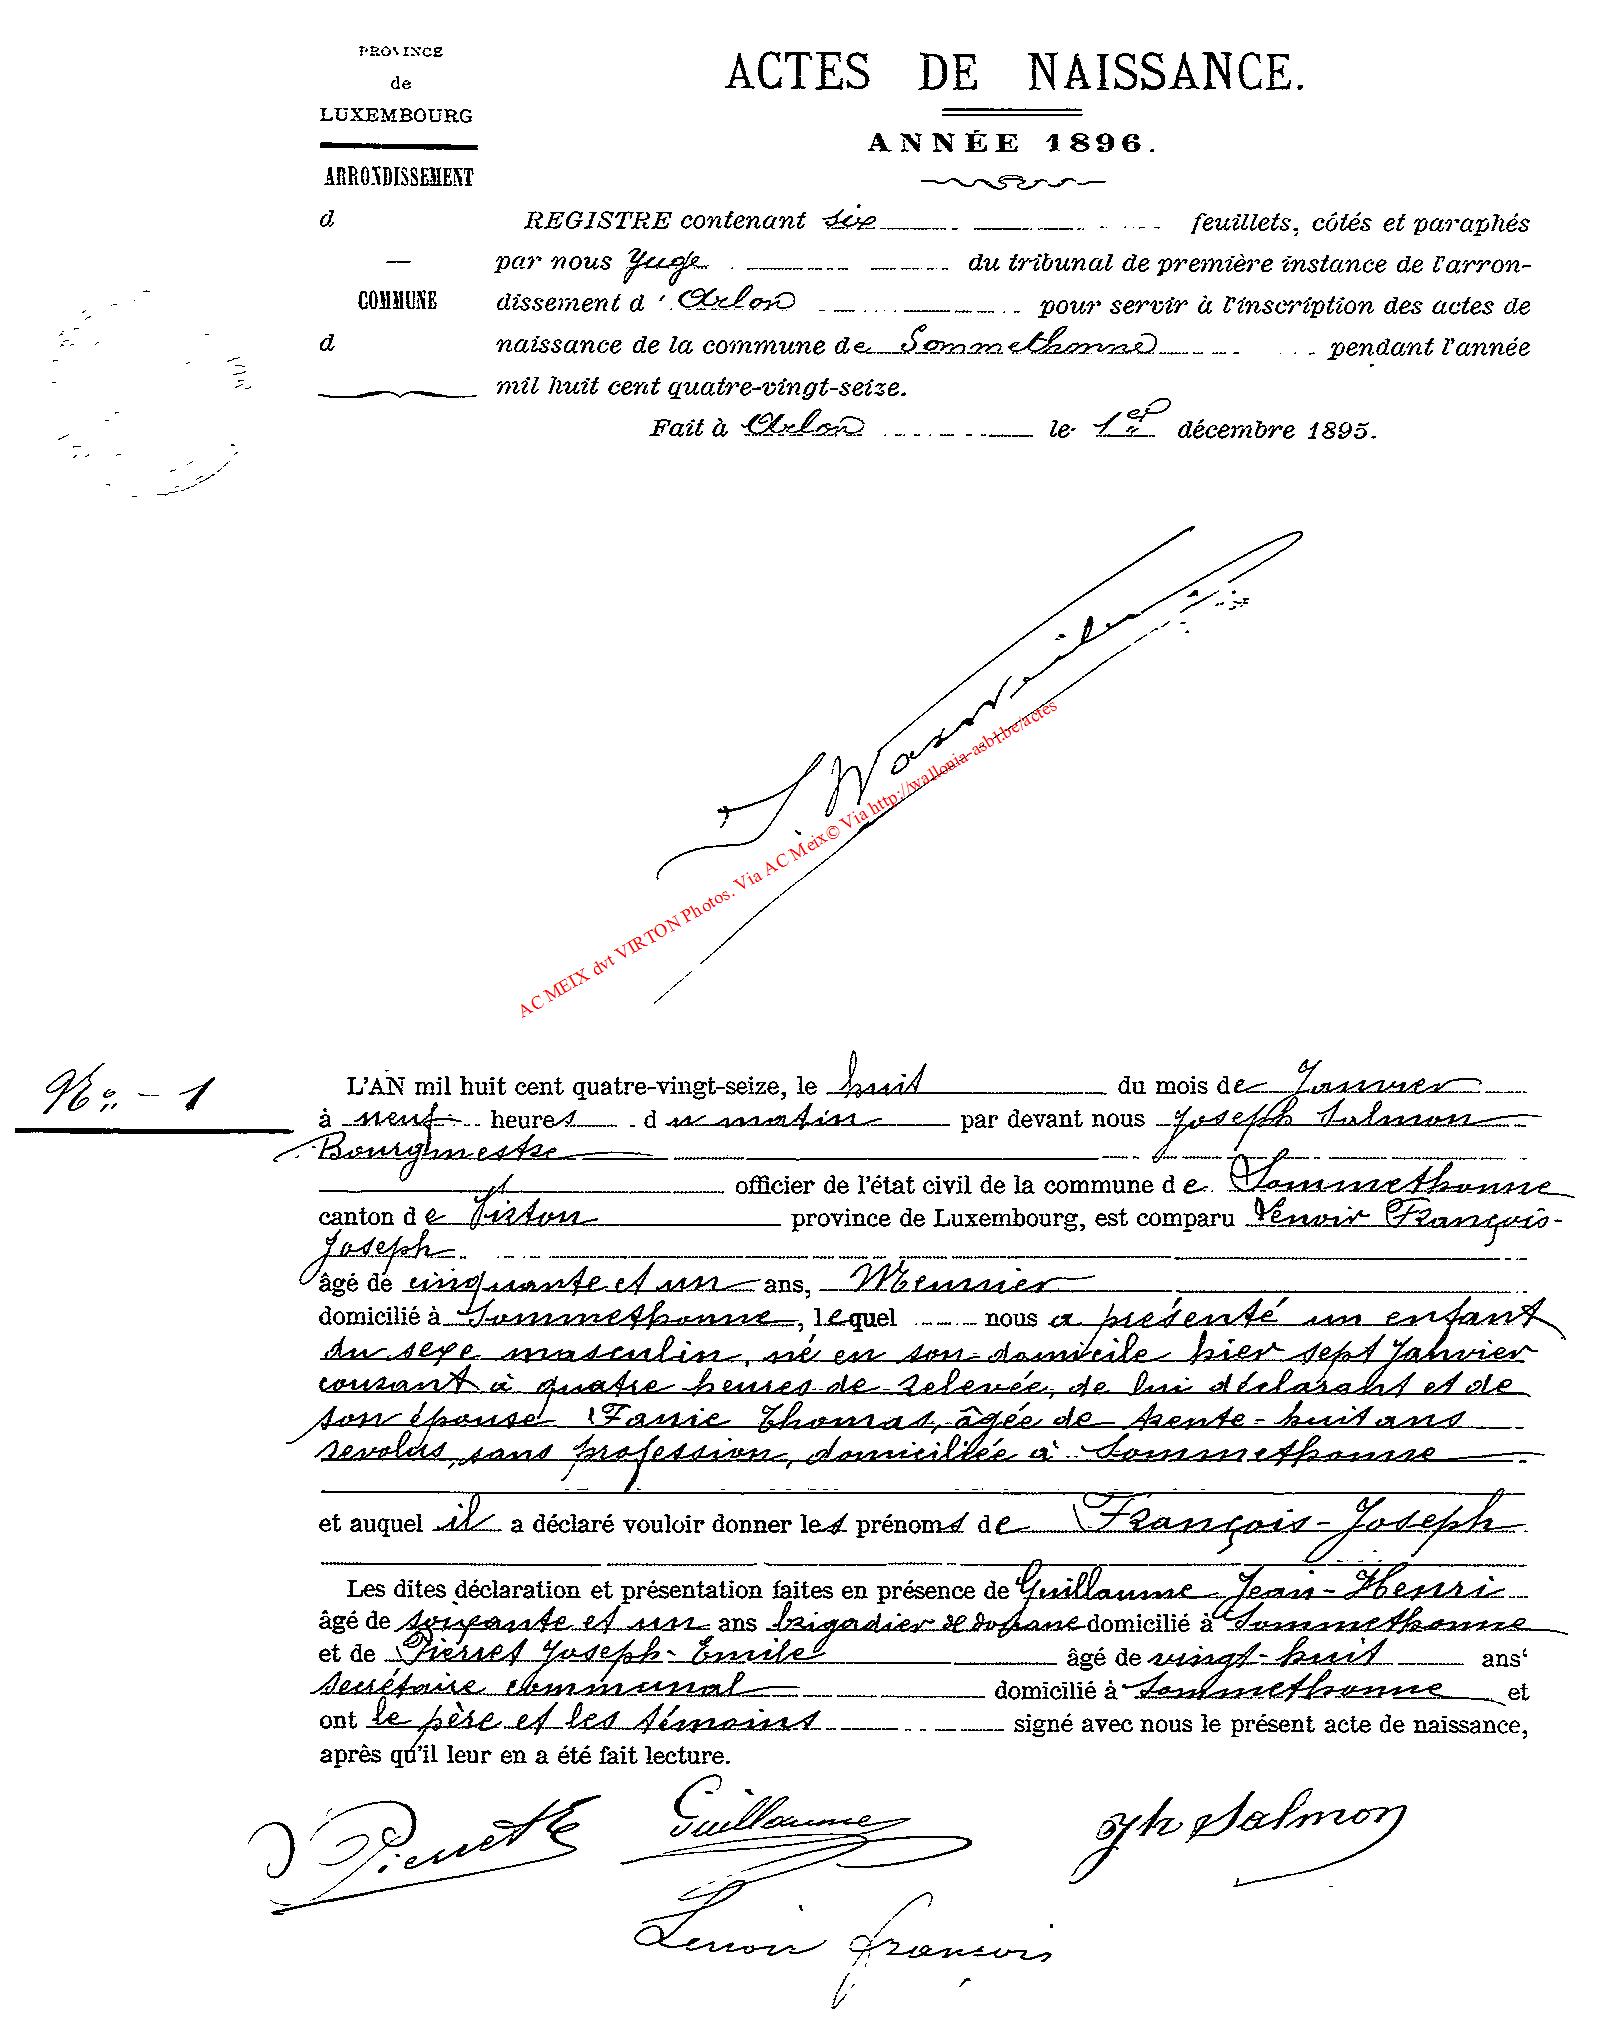 PROVINCE
de
LUXEMBOURG
ARRONDISSEMENT
d
COMMUNE
d
ACTES DE NAISSANCE.
ANNÉE 1896.
REGISTRE contenant six feuillets, côtés et paraphés
par nous Juge du tribunal de première instance de l'arron-
dissement d'Arlon pour servir à l'inscription des actes de
naissance de la commune de Sommethonne pendant l'année
mil huit cent quatre-vingt-seize.
Fait à Arlon le 1er décembre 1895.
AC MEIX dvt VIRTON Photos. Via AC Meix© Via http://wallonia-asbl.be/actes
No - 1
L'AN mil huit cent quatre-vingt-seize, le huit du mois de Janvier
à neuf heures du matin par devant nous Joseph Salmon
Bourgmestre
officier de l'état civil de la commune de Sommethonne
canton de Virton province de Luxembourg, est comparu Lenoir François-
Joseph
âgé de cinquante et un ans, Meunier
domicilié à Sommethonne, lequel nous a présenté un enfant
du sexe masculin, né en son domicile hier sept Janvier
courant à quatre heures de relevée, de lui déclarant et de
son épouse Thomas, âgée de trente-huit ans
révolus, sans profession, domiciliée à Sommethonne
et auquel il a déclaré vouloir donner les prénoms de François-Joseph
Les dites déclaration et présentation faites en présence de Guillaume Jean-Henri
âgé de soixante et un ans brigadier de douane domicilié à Sommethonne
et de Pierret Joseph-Emile âgé de vingt-huit ans
secrétaire communal domicilié à Sommethonne et
ont le père et les témoins signé avec nous le présent acte de naissance,
après qu'il leur en a été fait lecture.
Pierret E Guillaume Jh Salmon
Lenoir françois